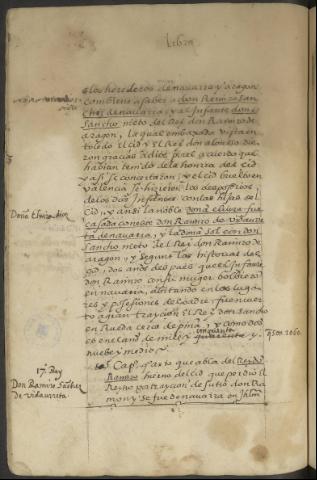 Libro
a los herederos de navarra y aragon
combiene a saber a don Ramiro San
ches de navarra, y al Infante don
Sancho nieto del Rei don Ramiro de
aragon, la qual embaxada vista en
toledo el cid y el Rei don alonso die
ron gracias a dios por el acuerdo que
habian tenido de la honrra del cid
y assi se concertaron, y el cid buelto en
valencia se hizieron los desposorios
de los dos Infantes con las hijas del
Cid, y ansi la noble dona elvira fue
casada con este don Ramiro de vidaurre
ta de navarra, y la dona sol con don
Sancho nieto del Rei don Ramiro de
aragon, y segun las historias del
cid, dos años despues que el Infante
don Ramiro con su muger bolvieron
en navarra, abitando en los luga
res y posesiones del padre, fue muer
to a gran traycion el Rei don Sancho
en Rueda cerca de peña, y como dos
es en el año de mil y cinquenta y
nuebe y medio
Cap. quarto que abla del Rei don
Ramiro hierno del cid que perdio el
Reyno por traycion de su tio don Ra
mon y se fue de navarra en Jhlm
Doña Elvira
17 Rey
Don Ramiro Sanchez
de Vidaurreta
año 1060